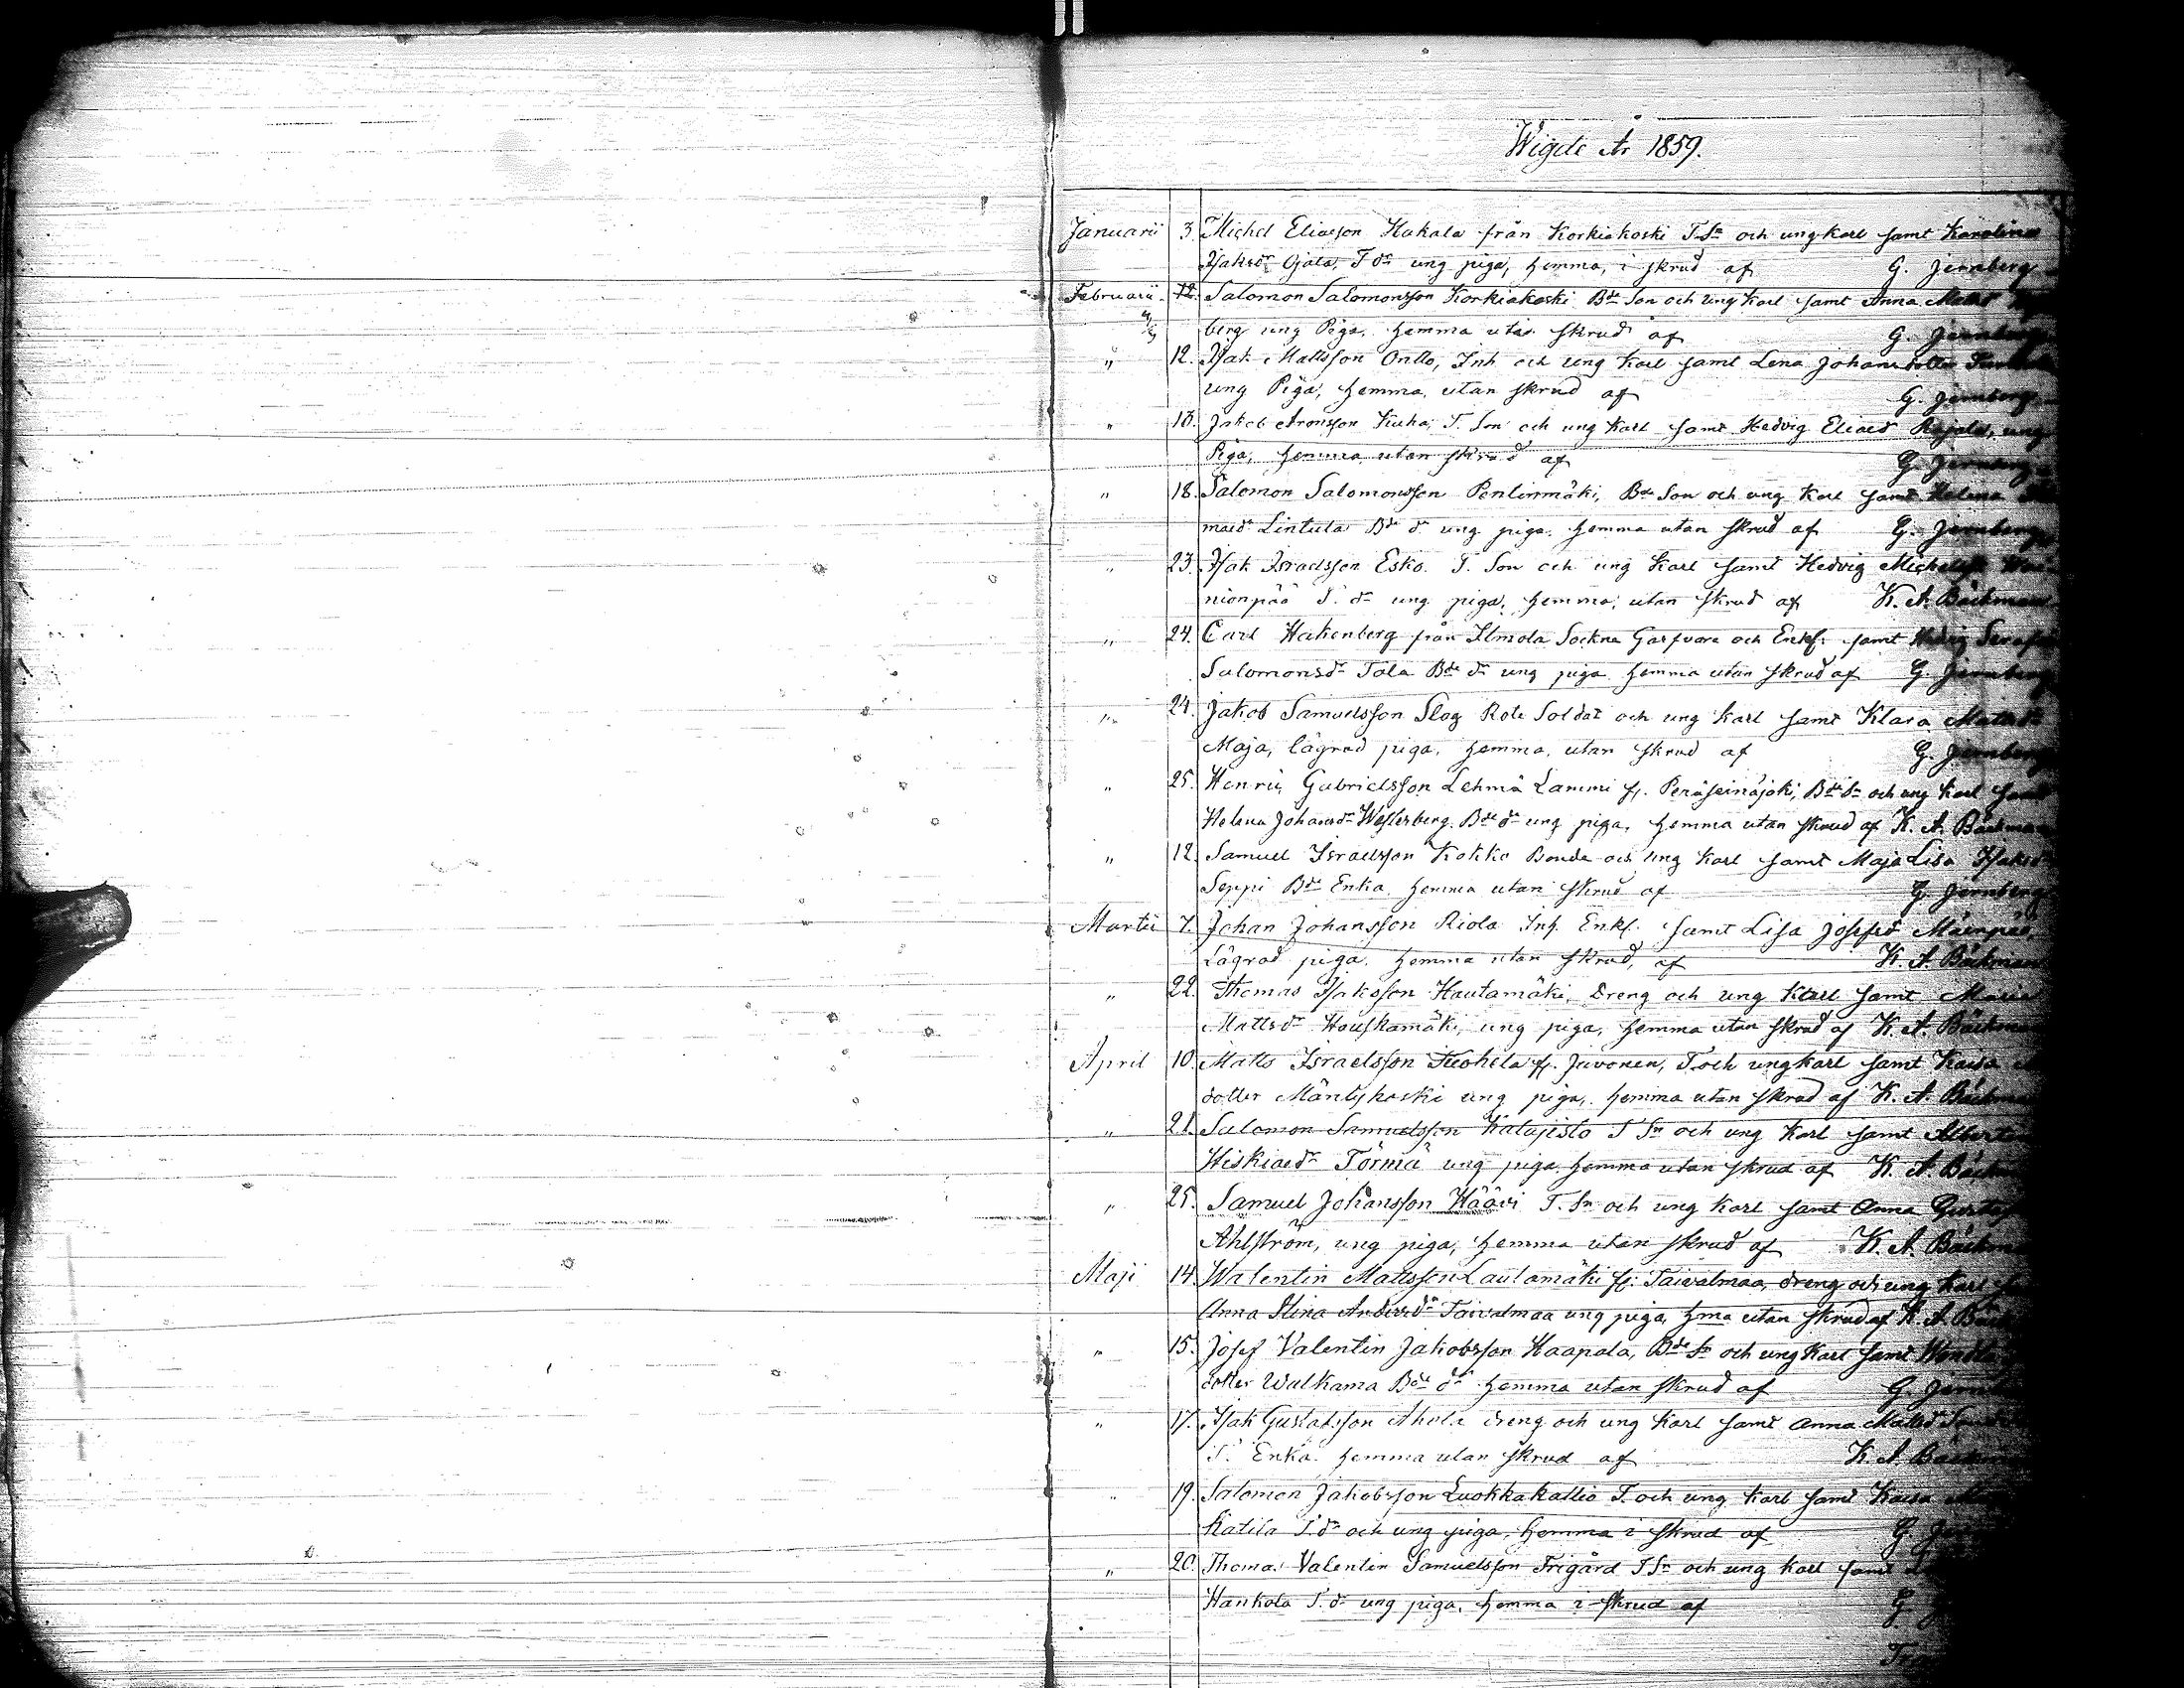 Wigde År 1859.
Januarii 3. Michel Eliasson Hakala från Korkiakoski T. Sn och ung karl samt Karolina
Isaksdr Ojala, T dr ung piga, hemma, i skrud af G. Jernberg
Februarii 12. Salomon Salomonsson Korkiakoski Bde Son och ung Karl samt Anna
berg ung Piga, hemma utan skrud af G. Jernberg
" 12. Isak Mattsson Onllo, Inh och ung Karl samt Lena Johansdotter
ung Piga, hemma, utan skrud af G. Jernberg
" 18. Jakob Aronsson Kuha, T. Son och ung Karl samt Hedvig Eliasd Rajala, ung
Piga, hemma utan skrud af G. Jernberg
" 18. Salomon Salomonsson Penlinmäki, Bde Son och ung Karl samt Helena
masdr Lintula Bde dr ung piga, hemma utan skrud af G. Jernberg
" 23. Isak Israelsson Esko. T. Son och ung Karl samt Hedvig
nionpää T. dr ung piga, hemma, utan skrud af K. A. Bäckman
" 24. Carl Hakenberg från Ilmola Sockne Garfvare och Enkl. samt Hedvig
Salomonsdr Tala Bde dr ung piga hemma utan skrud af G. Jernberg
" 24. Jakob Samuelsson Slog Rote Soldat och ung karl samt Klara Mattsdr
Maja, lägrad piga, hemma, utan skrud af G. Jernberg
" 25. Henric Gabrielsson Lehmä Lammi fr. Peräseinäjoki, Bde Sn och ung Karl samt
Helena Johansdr Westerberg. Bde dr ung piga, hemma utan skrud af K. A. Bäckman
" 12. Samuel Israelsson Kokko Bonde och ung Karl samt Maja Lisa Isaksdr
Seppi Bde Enka hemma utan skrud af G. Jernberg
Martii 7. Johan Johansson Riola Inh. Enkl. samt Lisa Josefsd Mäenpää,
Lägrad piga, hemma utan skrud, af K. A. Bäckman
" 22. Thomas Isaksson Hautamäki, dreng och ung Karl samt Maria
Mattsdr Houskamäki, ung piga, hemma utan skrud af K. A. Bäckman
April 10. Matts Israelsson Kuohela fr. Juvonen, T. och ung karl samt Kaisa
dotter Mäntykoski ung piga, hemma utan skrud af K. A. Bäckman
" 21. Salomon Samuelsson Katajisto T Sn och ung Karl samt
Hiskiasdr Törmä ung piga hemma utan skrud af K. A. Bäckman
" 25. Samuel Johansson Wääri T. Sn och ung Karl samt Anna
Ahlström, ung piga, hemma utan skrud af K. A. Bäckman
Maji 14. Walentin Mattsson Lautamäki fr. Taivalmaa, dreng och ung Karl
Anna Stina Andersdr Taivalmaa ung piga, hma utan skrud af K. A.
" 15. Josef Valentin Jakobsson Haapala, Bde Sn och ung Karl samt
dotter Walkama Bde dr hemma utan skrud af G.
" 17. Isak Gustafsson Ahola dreng och ung Karl samt Anna Mattsd
T. Enka. hemma utan skrud af K. A.
" 19. Salomon Jakobsson Luokkakallio T. och ung Karl samt Kaisa
Katila T. dr och ung piga, hemma i skrud af G.
" 20. Thomas Valentin Samuelsson Frigård T Sn och ung Karl samt
Hankola T. dr ung piga, hemma i skrud af G.